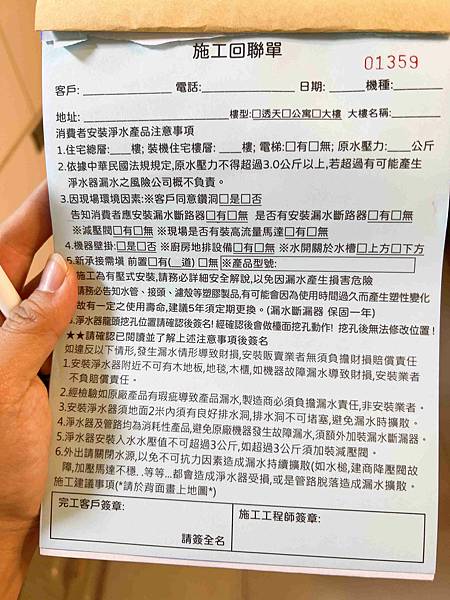 施工回聯單
01359
客戶: 電話: 日期: 機種:
地址: 樓型:□透天□公寓□大樓 大樓名稱:
消費者安裝淨水產品注意事項
1.住宅總層: 樓; 裝機住宅樓層: 樓; 電梯:□有□無; 原水壓力: 公斤
2.依據中華民國法規規定,原水壓力不得超過3.0公斤以上,若超過有可能產生
淨水器漏水之風險公司概不負責。
3.因現場環境因素:※客戶同意鑽洞□是□否
告知消費者應安裝漏水斷路器□有□無 是否有安裝漏水斷路器□有□無
※減壓閥□有□無 ※現場是否有裝高流量馬達□有□無
4.機器壁掛:□是□否 ※廚房地排設備□有□無 ※水開關於水槽□上方□下方
5.新承接需填 前置□有(__道) □無 ※產品型號:
施工為有壓式安裝,請務必詳細安全解說,以免因漏水產生損害危險
請務必告知水管、接頭、濾殼等塑膠製品,有可能會因為使用時間過久而產生塑性變化
故有一定之使用壽命,建議5年須定期更換。(漏水斷漏器 保固一年)
淨水器龍頭挖孔位置請確認後簽名! 經確認後會做檯面挖孔動作! 挖孔後無法修改位置!
★★請確認已閱讀並了解上述注意事項後簽名
如違反以下情形,發生漏水情形導致財損,安裝販賣業者無須負擔財損賠償責任
1.安裝淨水器附近不可有木地板,地毯,木櫃,如機器故障漏水導致財損,安裝業者
不負賠償責任。
2.經檢驗如原廠產品有瑕疵導致產品漏水,製造商必須負擔漏水責任,非安裝業者。
3.安裝淨水器須地面2米內須有良好排水洞,排水洞不可堵塞,避免漏水時擴散。
4.淨水器及管路均為消耗性產品,避免原廠機器發生故障漏水,須額外加裝漏水斷漏器。
5.淨水器安裝入水水壓值不可超過3公斤,如超過3公斤須加裝減壓閥。
6.外出請關閉水源,以免不可抗力因素造成漏水持續擴散(如水槌,建商降壓閥故
障,加壓馬達不穩...等等...都會造成淨水器受損,或是管路脫落造成漏水擴散。
施工建議事項(*請於背面畫上地圖*)
完工客戶簽章:
請簽全名
施工工程師簽章: